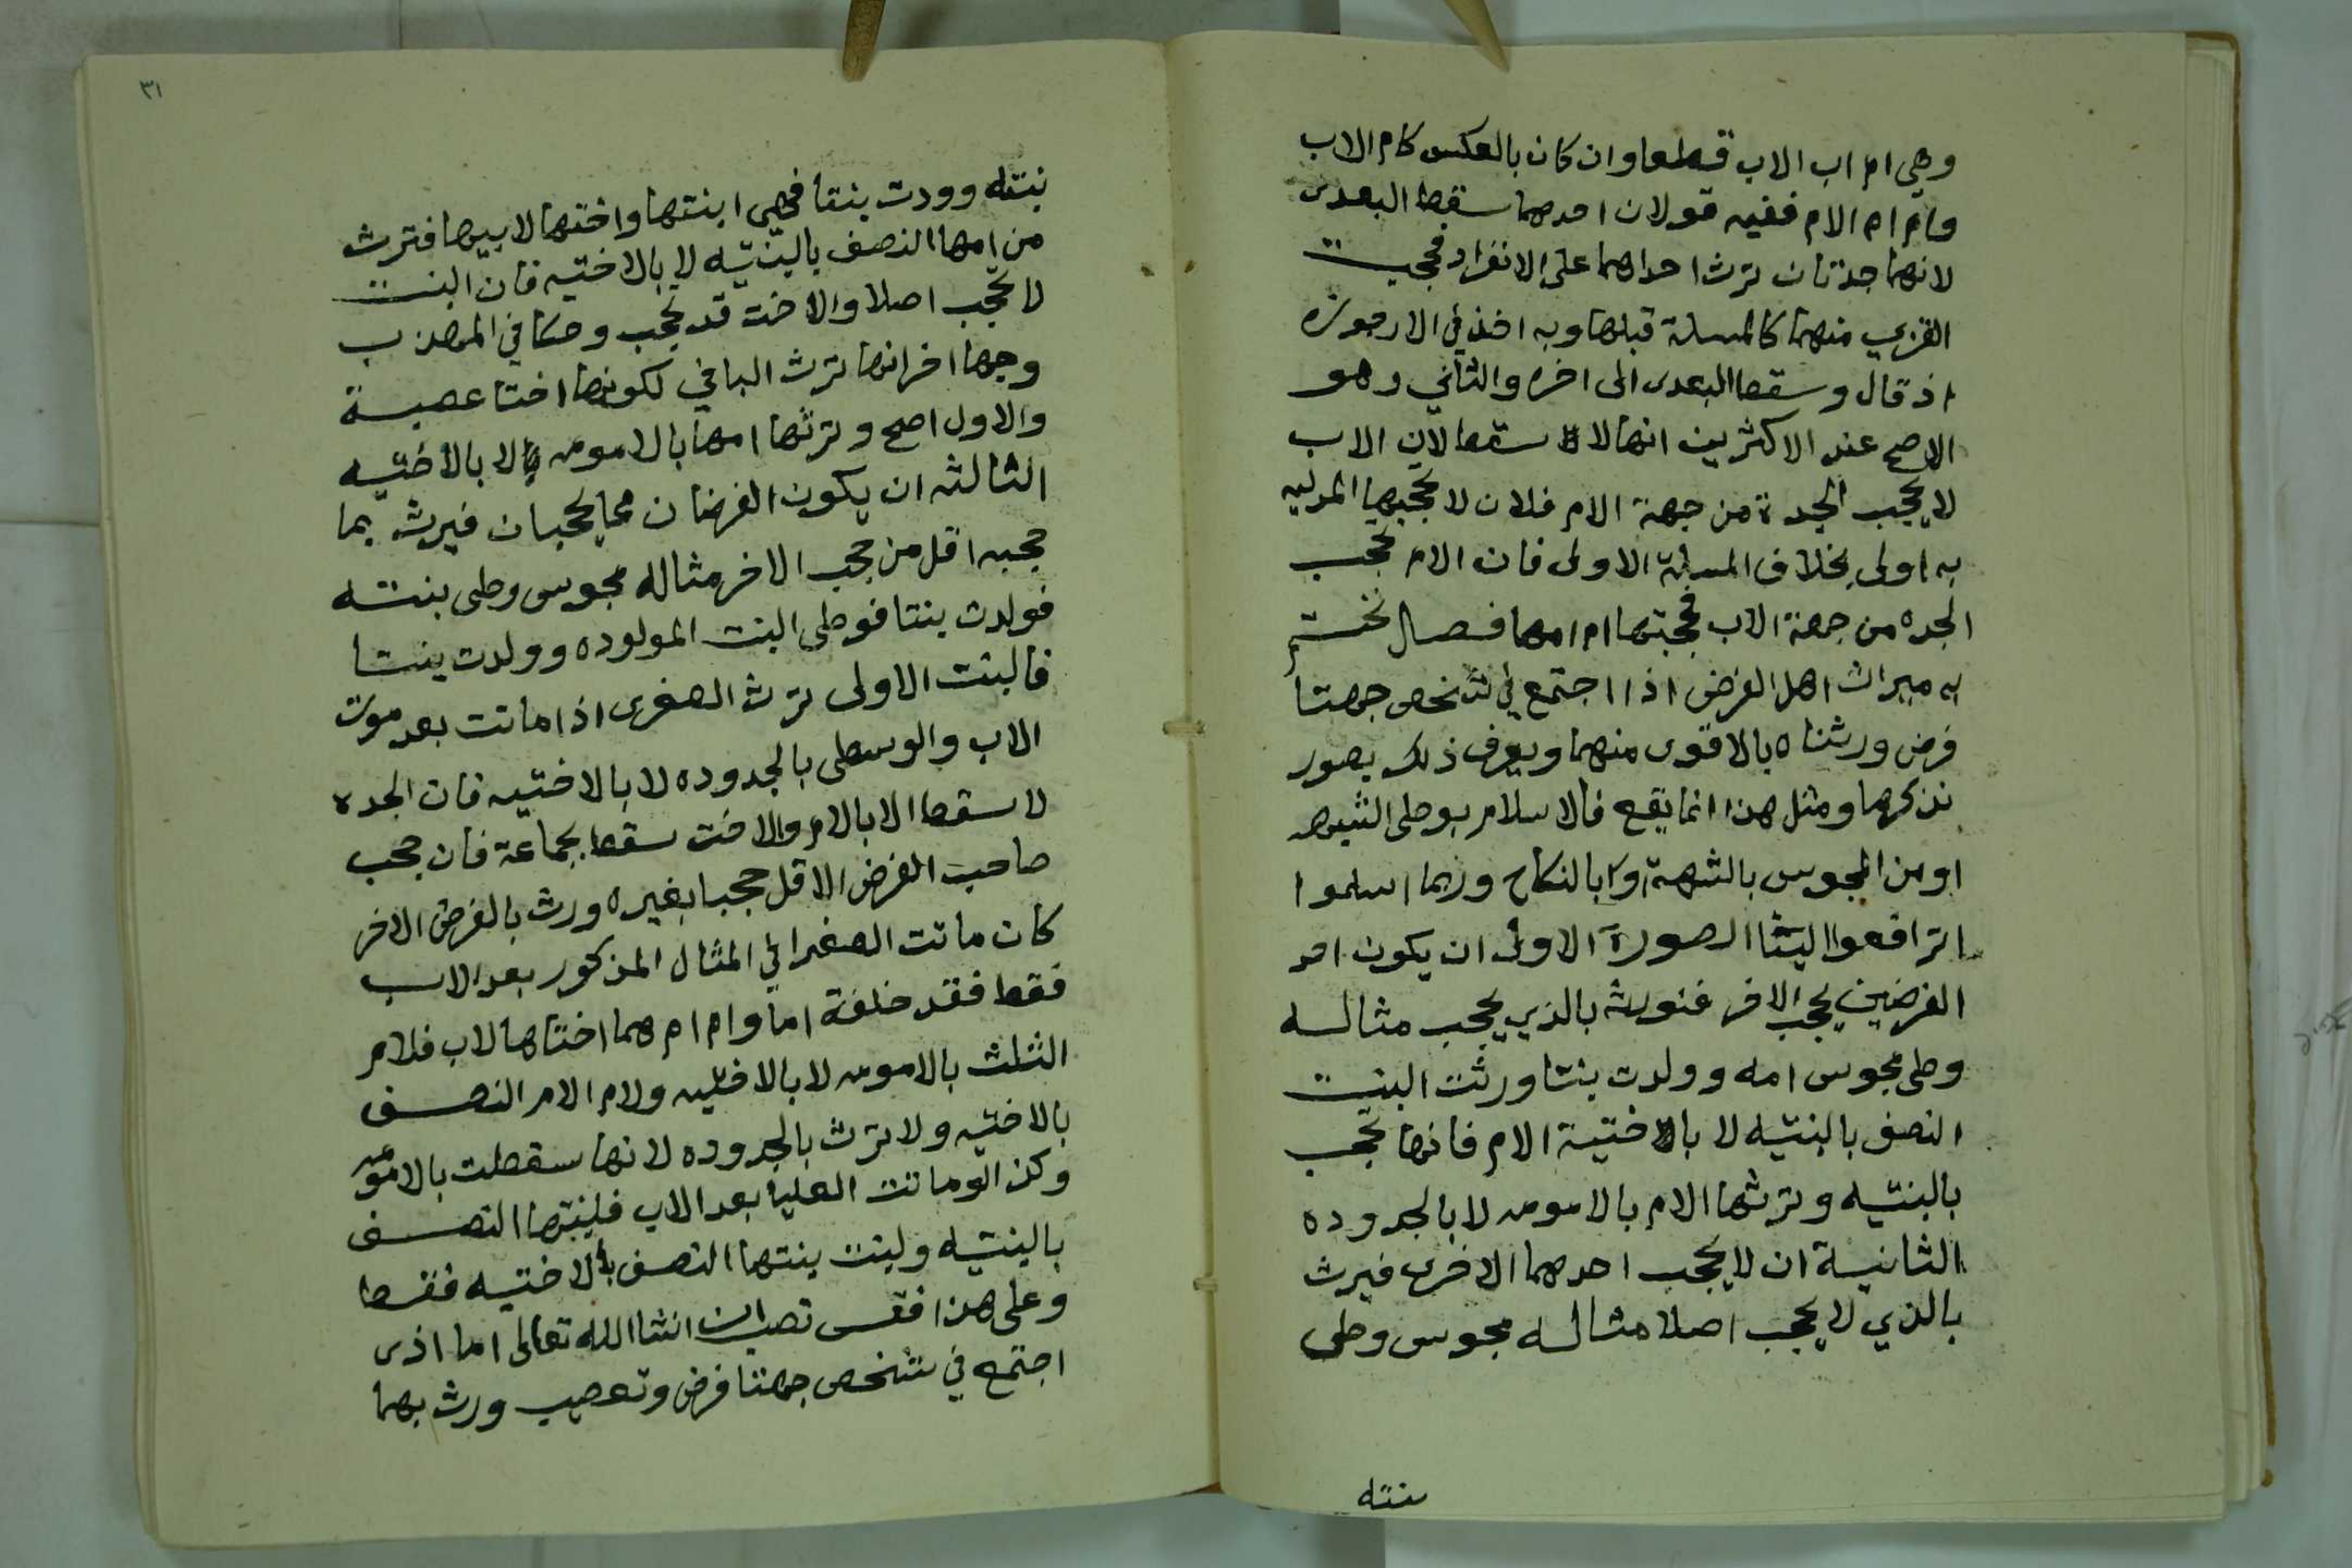 وهي ام اب الاب قطعا وان كان بالعكس كام الاب
وام ام الام ففيه قولان احدهما سقط البعدى
لانهما جدتان ترث احداهما على الانفراد فحجبت
القربى منهما كالمسلة قبلها وبه اخذ في الارجوزه
اذ قال وسقط البعدى الى اخره والثاني وهو
الاصح عند الاكثرين انها لا سقط لان الاب
لا يحجب الجدة من جهة الام فلان لا تحجبها المدليه
به اولى بخلاف المسلة الاولى فان الام تحجب
الجده من جهة الاب فحجبتها ام امها فصل نختم
به ميراث اهل الفرض اذا اجتمع في شخص جهتا
فرض ورثناه بالاقوى منهما ويعرف ذلك بصور
نذكرها ومثل هذا انما يقع فالاسلام بوطى الشبهه
او من المجوس بالشبهة او بالنكاح وربما اسلموا
اترافعوا الينا الصورة الاولى ان يكون احد
الفرضين يحجب الاخر فنورثه بالذي يحجب مثاله
وطى مجوس امه وولدت بنتا ورثت البنت
النصف بالبنتيه لا بالاختية الام فانها تحجب
بالبنتيه وترثها الام بالامومه لا بالجدوده
الثانية ان لا يحجب احدهما الاخرى فيرث
بالذي لا يحجب اصلا مثاله مجوس وطى
بنته
٣١
بنته وودت بنتا فهي ابنتها واختها لابيها فترث
من امها النصف بالبنتيه لا بالاختيه فان البنت
لا تحجب اصلا والاخت قد تحجب وحكا في المهذب
وجها اخر انها ترث الباقي لكونها اختا عصبة
والاول اصح وترثها امها بالامومه لا بالاختيه
الثالثه ان يكون الفرضان مما يحجبان فيرث بما
حجبه اقل من حجب الاخر مثاله مجوس وطى بنته
فولدت بنتا فوطى البنت المولوده وولدت بنتا
فالبنت الاولى ترث الصغرى اذا ماتت بعد موت
الاب والوسطى بالجدوده لا بالاختيه فان الجده
لا سقط الا بالام والاخت سقط بجماعة فان حجب
صاحب الفرض الاقل حجبا بغيره ورث بالفرض الاخر
كان ماتت الصغرا في المثال المذكور بعد الاب
فقط فقد خلفة اما وام ام هما اختاها لاب فلام
الثلث بالامومه لا بالاختيه ولام الام النصف
بالاختيه ولا ترث بالجدوده لانها سقطت بالامومه
وكذا لو ماتت العليا بعد الاب فلبنتها النصف
بالبنتيه ولبنت بنتها النصف بالاختيه فقط
وعلى هذا فقس تصب ان انشا الله تعالى اما اذى
اجتمع في شخص جهتا فرض وتعصيب ورث بهما